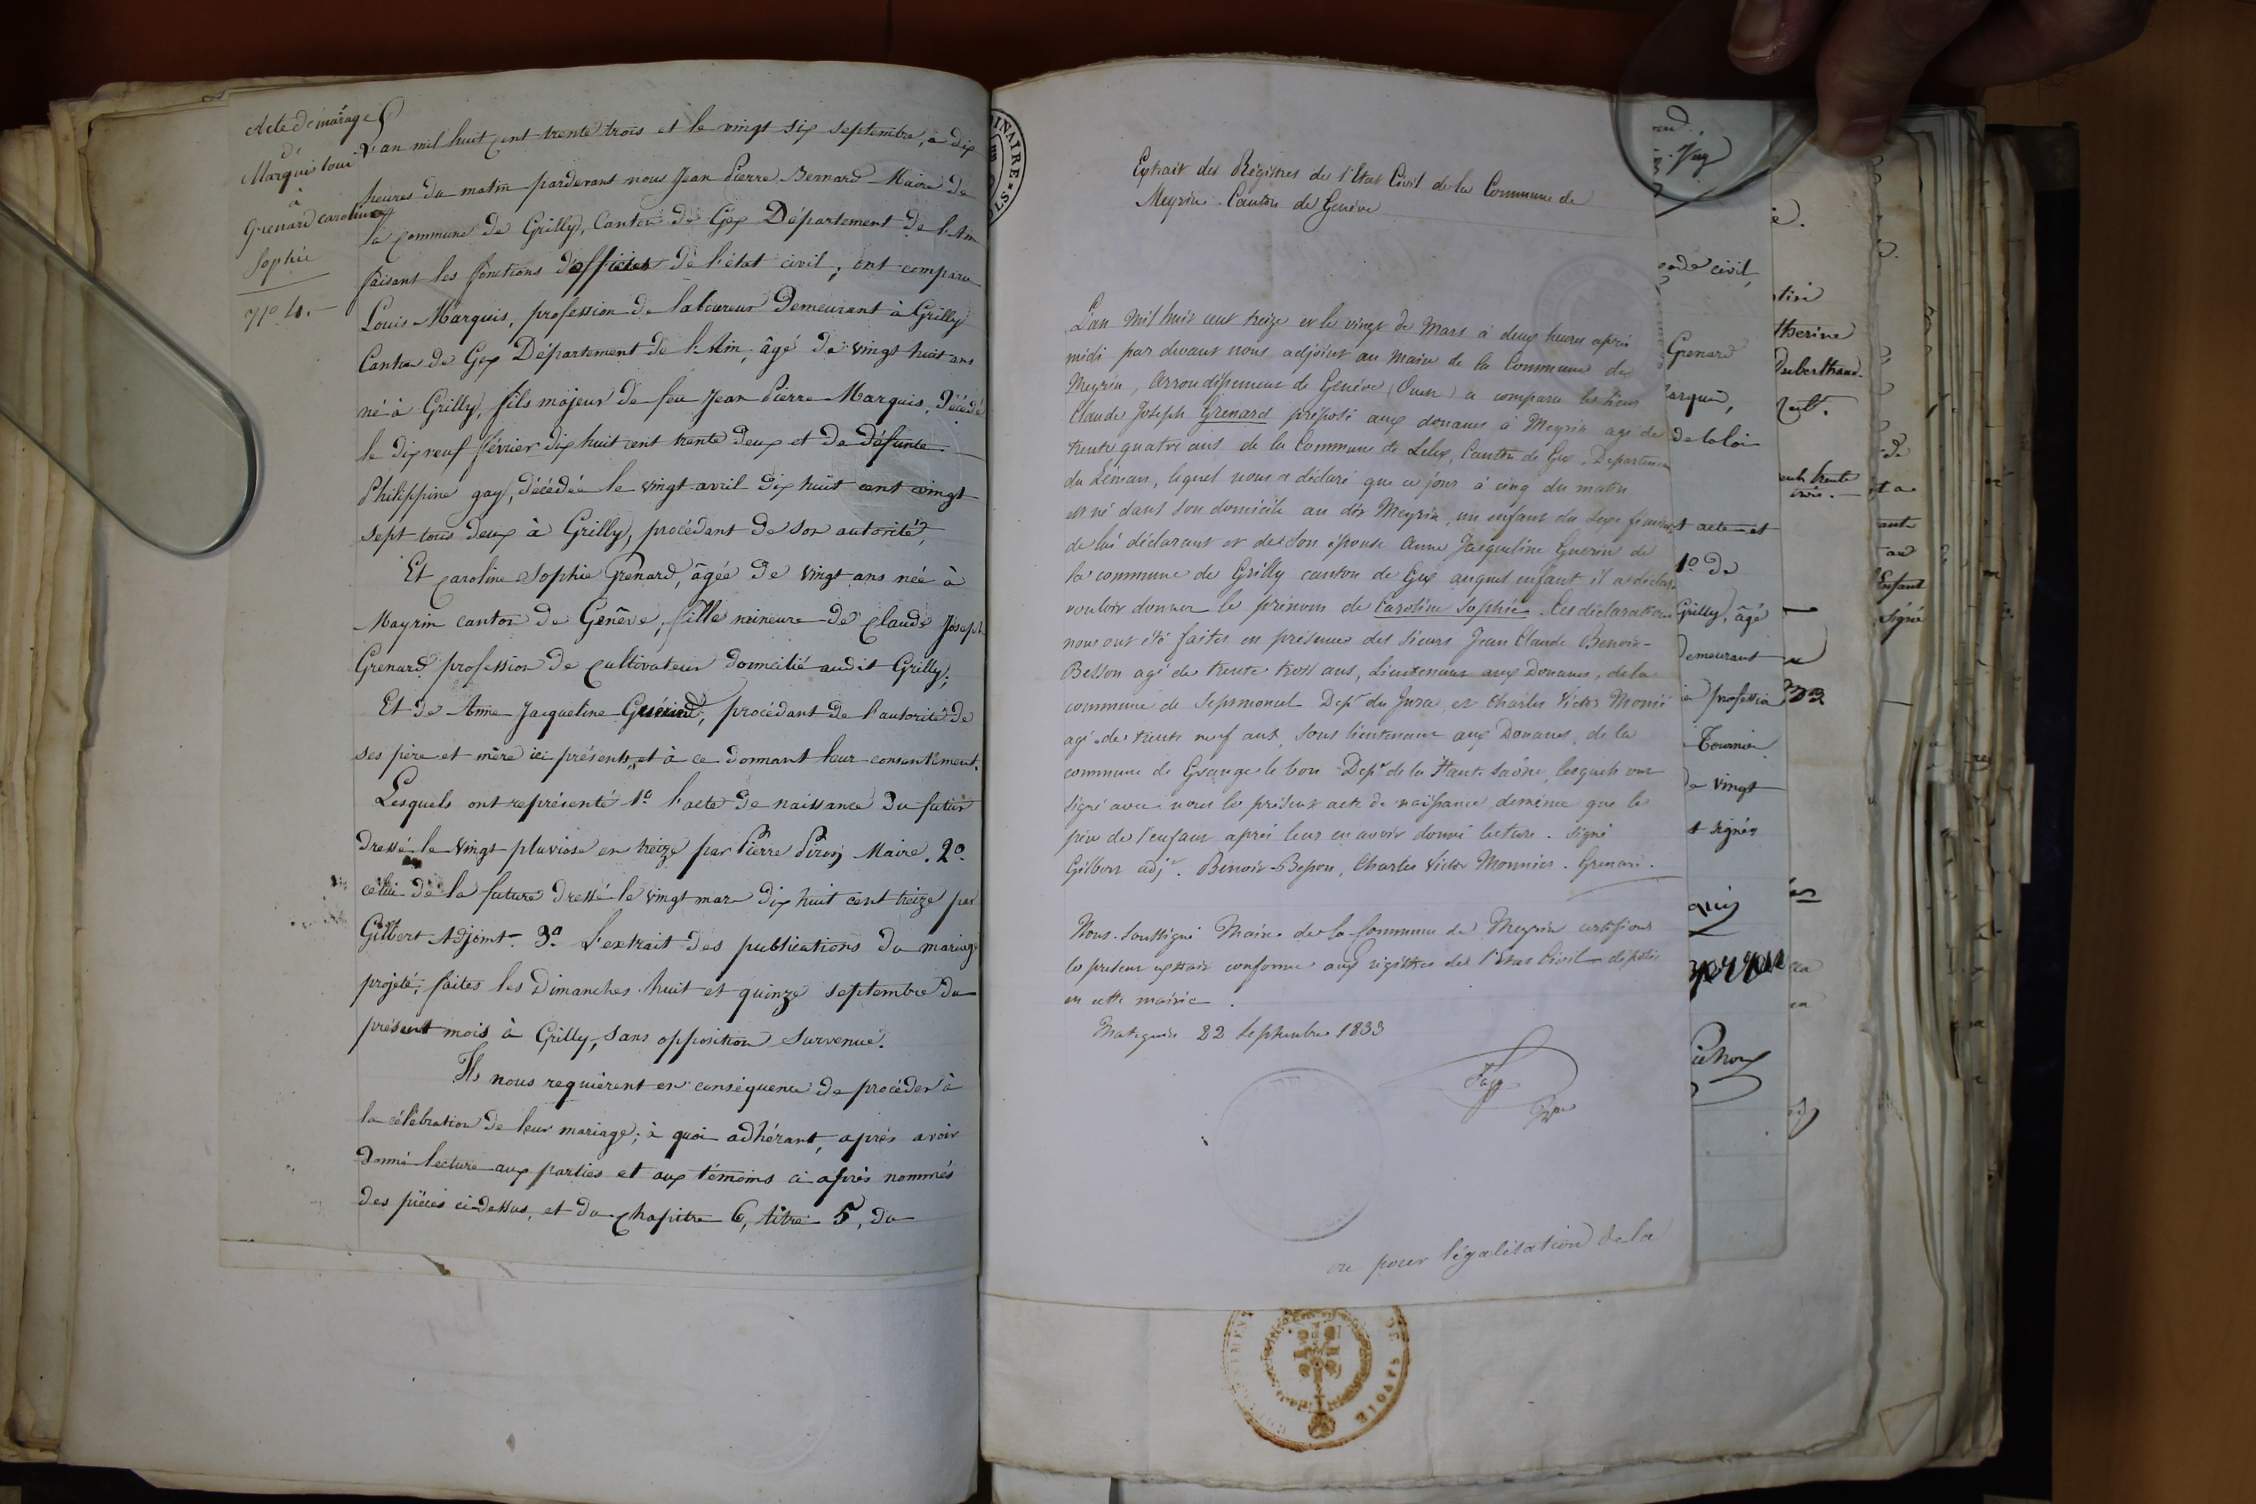 Acte de mariage
de
Marquis Louis
à
Grenard caroline
Sophie
N° 4.
L'an mil huit cent trente trois et le vingt six septembre, à dix
heures du matin pardevant nous Jean Pierre Bernard Maire de
la commune de Grilly, Canton de Gex Département de l'Ain
faisant les fonctions d'officier de l'état civil, ont comparu
Louis Marquis, profession de laboureur Demeurant à Grilly
Canton de Gex Département de l'Ain, âgé de vingt huit ans
né à Grilly, fils majeur de feu Jean Pierre Marquis, Décédé
le dix neuf février dix huit cent trente deux et de défunte
Philippine gay, décédée le vingt avril dix huit cent vingt
sept tous deux à Grilly, procédant de son autorité,
Et caroline Sophie Grenard, âgée de vingt ans née à
Mayrin canton de Genève, fille mineure de claude Joseph
Grenard profession de cultivateur domicilié audit Grilly,
Et de Anne Jacqueline Guérind, procédant de l'autorité de
ses père et mère ici présents, et à ce donnant leur consentement.
Lesquels ont représenté 1° l'acte de naissance du futur
dressé le vingt pluviose an treize par Pierre Maire. 2°
celui de la future dressé le vingt mars dix huit cent treize par
Gilbert Adjoint. 3° L'extrait des publications du mariage
projeté, faites les Dimanches huit et quinze septembre du
présent mois à Grilly, sans opposition survenue.
Ils nous requièrent en conséquence de procéder à
la célébration de leur mariage; à quoi adhérant, après avoir
donné lecture aux parties et aux témoins ci après nommés
des pièces ci-dessus, et du chapitre 6, titre 5, du
Extrait des Régistres de l'Etat Civil de la Commune de
Meyrin Canton de Genève
L'an Mil huit cent treize et le vingt de Mars à deux heures après
midi par devant nous adjoint au maire de la Commune de
Meyrin, Arrondissement de Genève (Ouest) a comparu le Sieur
Claude Joseph Grenard préposé aux douanes à Meyrin agé de
trente quatre ans de la Commune de Lelex, Canton de Gex, Departement
du Léman, lequel nous a déclaré que ce jour à cinq du matin
est né dans son domicile au dit Meyrin, un enfant du sexe féminin
de lui déclarant et de son épouse Anne Jacqueline Guerin de
la commune de Grilly canton de Gex auquel enfant il a déclaré
vouloir donner le prénom de Caroline Sophie. Les déclarations
nous ont été faites en présence des Sieurs Jean Claude Benoit-
Besson agé de trente trois ans, Lieutenant aux Douanes, de la
commune de Septmoncel Dept du Jura, et Charles Victor Monié
agé de trente neuf ans, Sous lieutenant aux Douanes, de la
commune de Grange le bon Dept de la Haute Saône, lesquels ont
signé avec nous le présent acte de naissance, de même que le
père de l'enfant après leur en avoir donné lecture. Signé
Gilbert adjt. Benoit-Besson, Charles Victor Monnier. Grenard.
Nous Soussigné Maire de la Commune de Meyrin certifions
le présent extrait conforme aux régistres de l'Etat Civil déposés
en cette mairie.
22 Septembre 1833
pour légalisation de la
code civil,
Grenard
de la loi
acte et
1° de
Grilly, âgé
Demeurant
profession
Tournier
de vingt
signés
DE SAVOIE